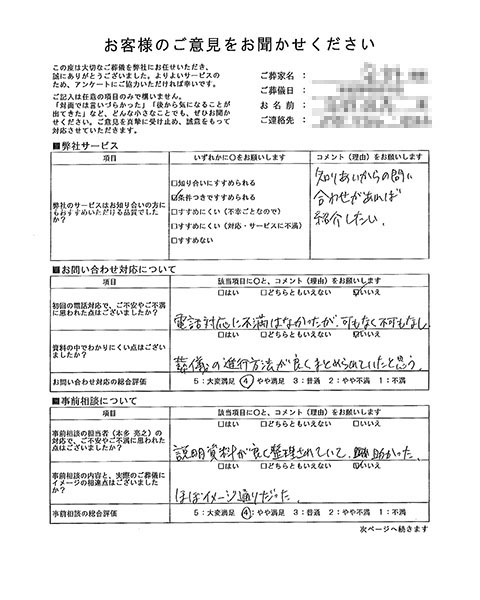 お客様のご意見をお聞かせください
この度は大切なご葬儀を弊社にお任せいただき、
誠にありがとうございました。よりよいサービスの
ため、アンケートにご協力いただければ幸いです。
ご記入は任意の項目のみで構いません。
「対面では言いづらかった」「後から気になることが
出てきた」など、どんな小さなことでも、ぜひお聞か
せください。ご意見を真摯に受け止め、誠意をもって
対応させていただきます。
ご葬家名：
ご葬儀日：
お名前：
ご連絡先：
■弊社サービス
項目 いずれかに○をお願いします コメント（理由）をお願いします
弊社のサービスはお知り合いの方に
もおすすめいただける品質でした
か？
□知り合いにすすめられる
☑条件つきですすめられる
□すすめにくい（不幸ごとなので）
□すすめにくい（対応・サービスに不満）
□すすめない
知りあいからの問い
合わせがあれば
紹介したい。
■お問い合わせ対応について
項目 該当項目に○と、コメント（理由）をお願いします
初回の電話対応で、ご不安やご不満
に思われた点はございましたか？
□はい □どちらともいえない ☑いいえ
電話対応に不満はなかったが、可もなく不可もなし
資料の中でわかりにくい点はござ
いましたか？
□はい □どちらともいえない ☑いいえ
葬儀の進行方法が良くまとめられていたと思う。
お問い合わせ対応の総合評価 5：大変満足 ④やや満足 3：普通 2：やや不満 1：不満
■事前相談について
項目 該当項目に○と、コメント（理由）をお願いします
事前相談の担当者（本多 亮之）の
対応で、ご不安やご不満に思われた
点はございましたか？
□はい □どちらともいえない ☑いいえ
説明資料が良く整理されていて、助かった。
事前相談の内容と、実際のご葬儀に
イメージの相違点はございました
か？
□はい □どちらともいえない ☑いいえ
ほぼイメージ通りだった。
事前相談の総合評価 5：大変満足 ④：やや満足 3：普通 2：やや不満 1：不満
次ページへ続きます